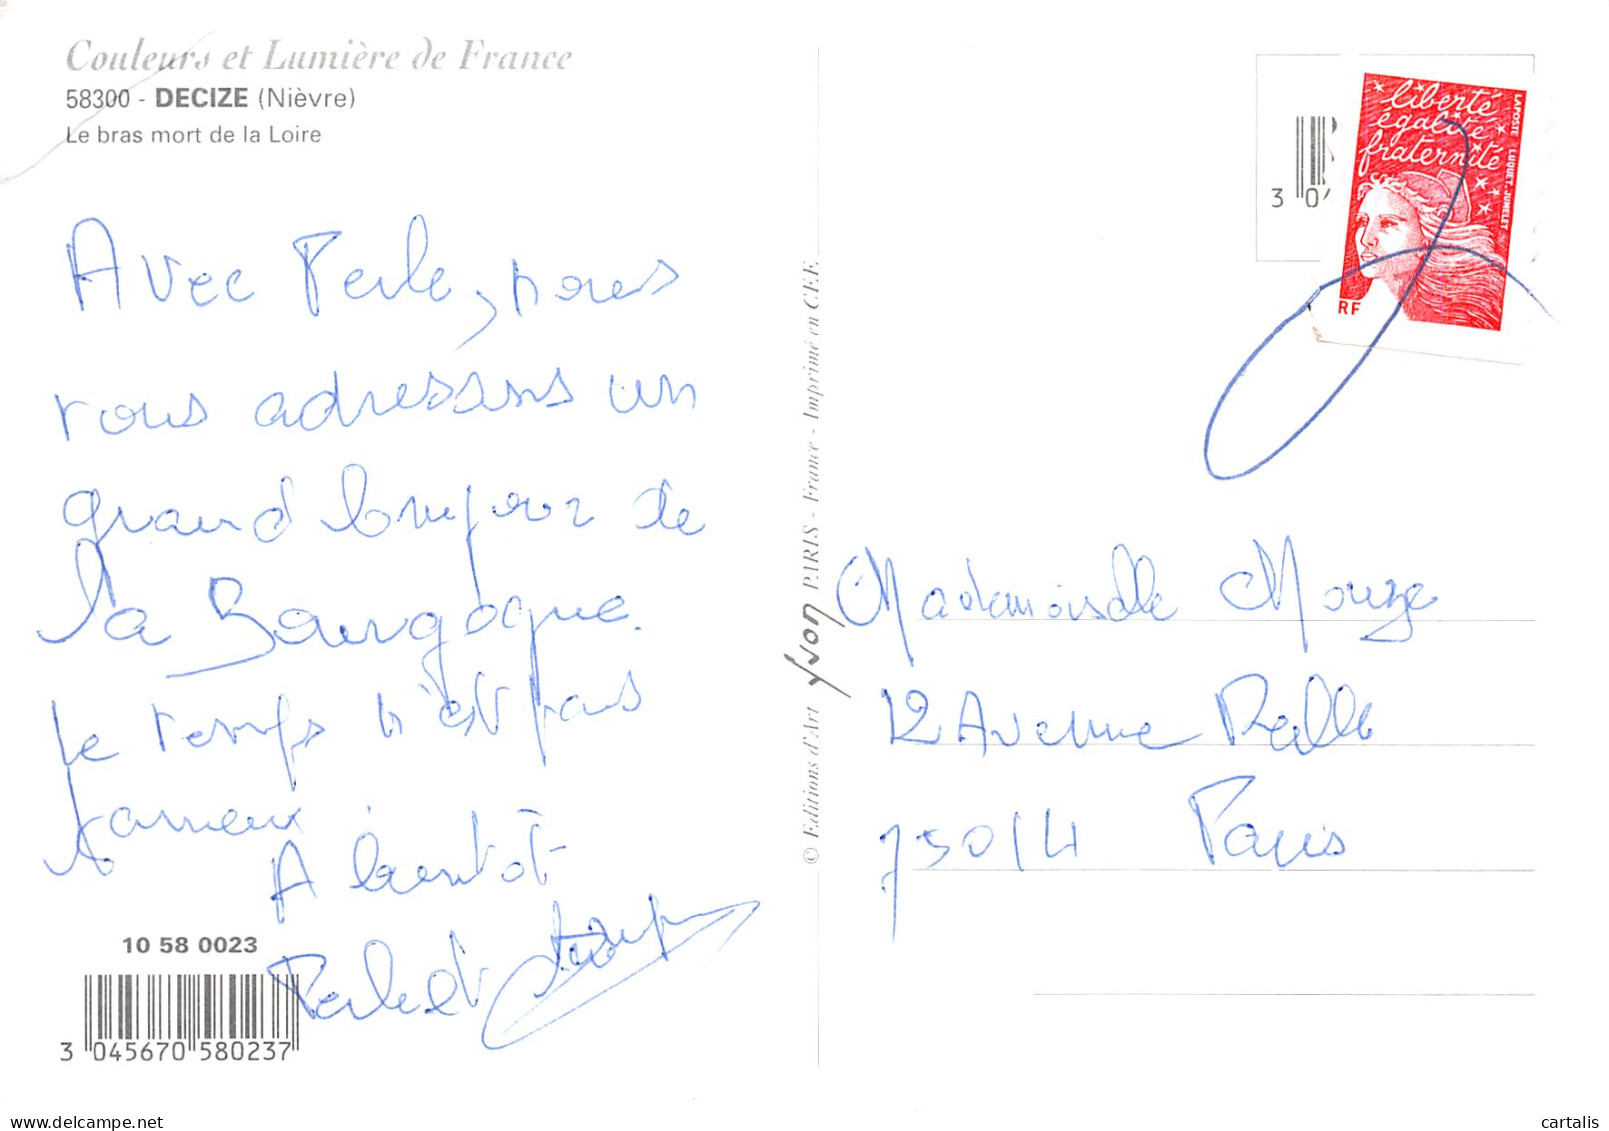 Couleurs et Lumière de France
58300 - DECIZE (Nièvre)
Le bras mort de la Loire
Avec Perle, nous
vous adressons un
grand bonjour de
la Bourgogne.
Le temps n'est pas
fameux
A bientôt
Perle et
10 58 0023
3 045670 580237
© Editions d'Art yvon PARIS - France - Imprimé en C.E.E.
3 04
liberté
égalité
fraternité
LAPOSTE LUQUET, JUMELET
RF
Mademoiselle Mouze
12 Avenue Reille
75014 Paris
cartalis
www.delcampe.net